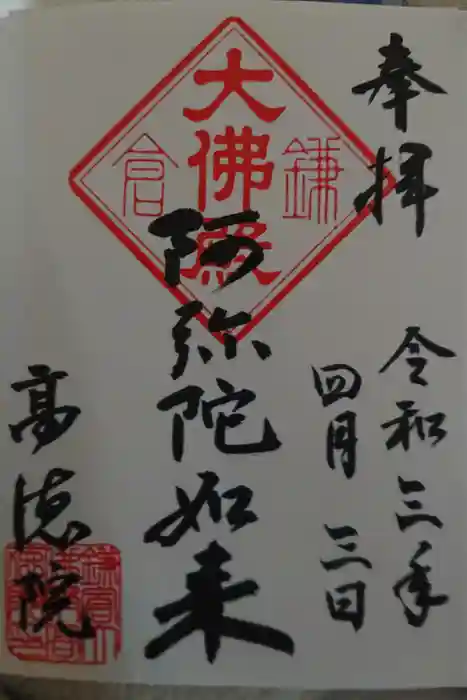 奉拝
令和三年
四月三日
鎌倉
大佛殿
阿弥陀如来
高徳院